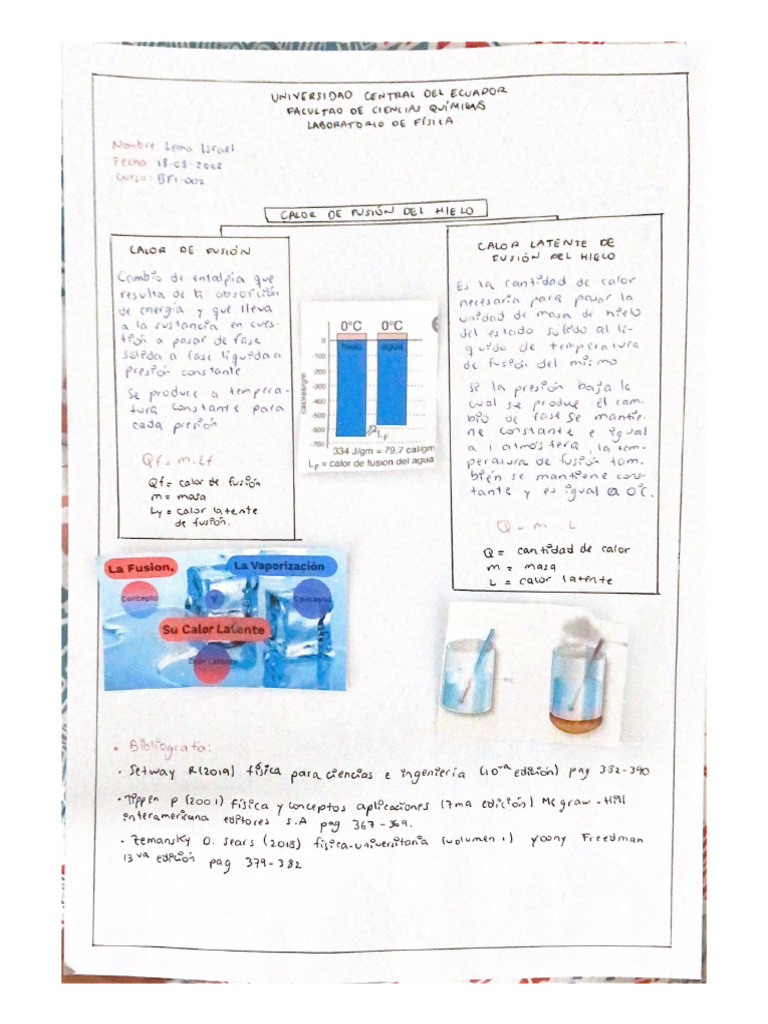 UNIVERSIDAD CENTRAL DEL ECUADOR
FACULTAD DE CIENCIAS QUÍMICAS
LABORATORIO DE FÍSICA
Nombre: Lema Israel
Fecha: 18-03-2022
Curso: BF1-002
CALOR DE FUSIÓN DEL HIELO
CALOR DE FUSIÓN
Cambio de entalpía que
resulta de la absorción
de energía y que lleva
a la sustancia en cues-
tión a pasar de fase
sólida a fase líquida a
presión constante
Se produce a tempera-
tura constante para
cada presión
Qf = m.Lf
Qf = calor de fusión
m = masa
Ly = calor latente
de fusión.
0°C 0°C
hielo agua
0
-100
-200
-300
-400
-500
-600
-700
calories/gm
LF
334 J/gm = 79.7 cal/gm
LF = calor de fusion del agua
CALOR LATENTE DE
FUSIÓN DEL HIELO
Es la cantidad de calor
necesaria para pasar la
unidad de masa de hielo
del estado sólido al lí-
quido de temperatura
de fusión del mismo
Si la presión baja la
cual se produce el cam-
bio de fase se mantie-
ne constante e igual
a 1 atmósfera, la tem-
peratura de fusión tam-
bién se mantiene cons-
tante y es igual a 0°C.
Q = m . L
Q = cantidad de calor
m = masa
L = calor latente
La Fusion,
La Vaporización
Concepto
y
Concepto
Su Calor Latente
Calor Latente
• Bibliografía:
• Setway R(2019) física para ciencias e ingeniería (10va edición) pag 382-390
• Tippen P (2001) física y conceptos aplicaciones (7ma edición) Mc graw - Hill
interamericana editores S.A pag 367-369.
• Zemansky D. Sears (2018) física-universitaria (volumen 1) yoony Freedman
13va edición pag 379-382